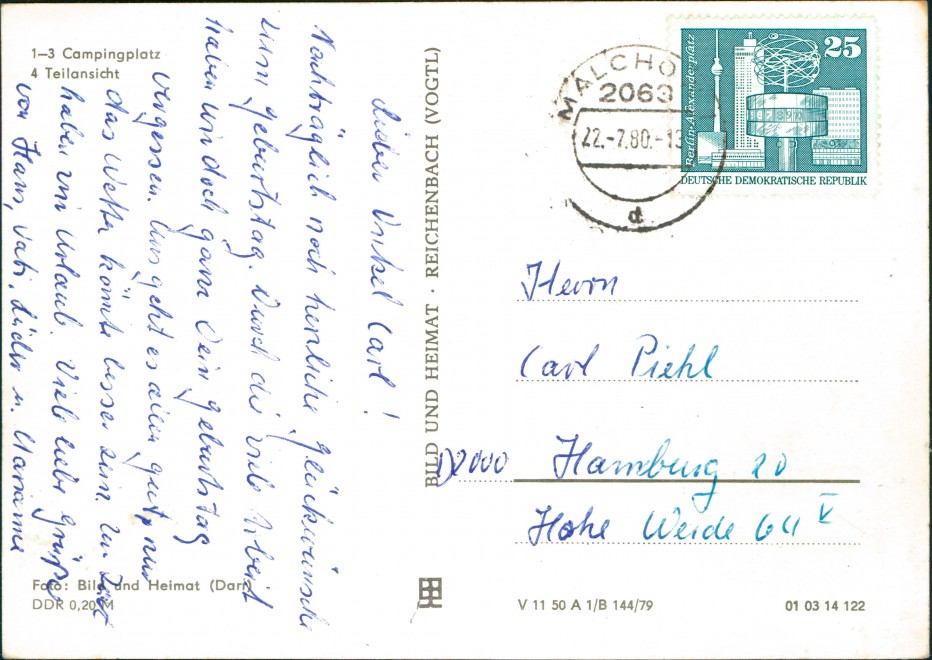 1–3 Campingplatz
4 Teilansicht
Lieber Onkel Carl!
Nachträglich noch herzliche Glückwünsche
zum Geburtstag. Durch die viele Arbeit
haben wir doch ganz Dein Geburtstag
vergessen. Uns geht es allen gut, nur
das Wetter könnte besser sein. Zur Zeit
haben wir Urlaub. Viele liebe Grüße
von Hans, Vati, u. Marianne
Foto: Bild und Heimat (Darr)
DDR 0,20 M
BILD UND HEIMAT · REICHENBACH (VOGTL)
MALCHO
2063
22.-7.80.-13
d
Berlin-Alexanderplatz
25
DEUTSCHE DEMOKRATISCHE REPUBLIK
Herrn
Carl Piehl
D2000 Hamburg 20
Hohe Weide 64 V
V 11 50 A 1/B 144/79
01 03 14 122